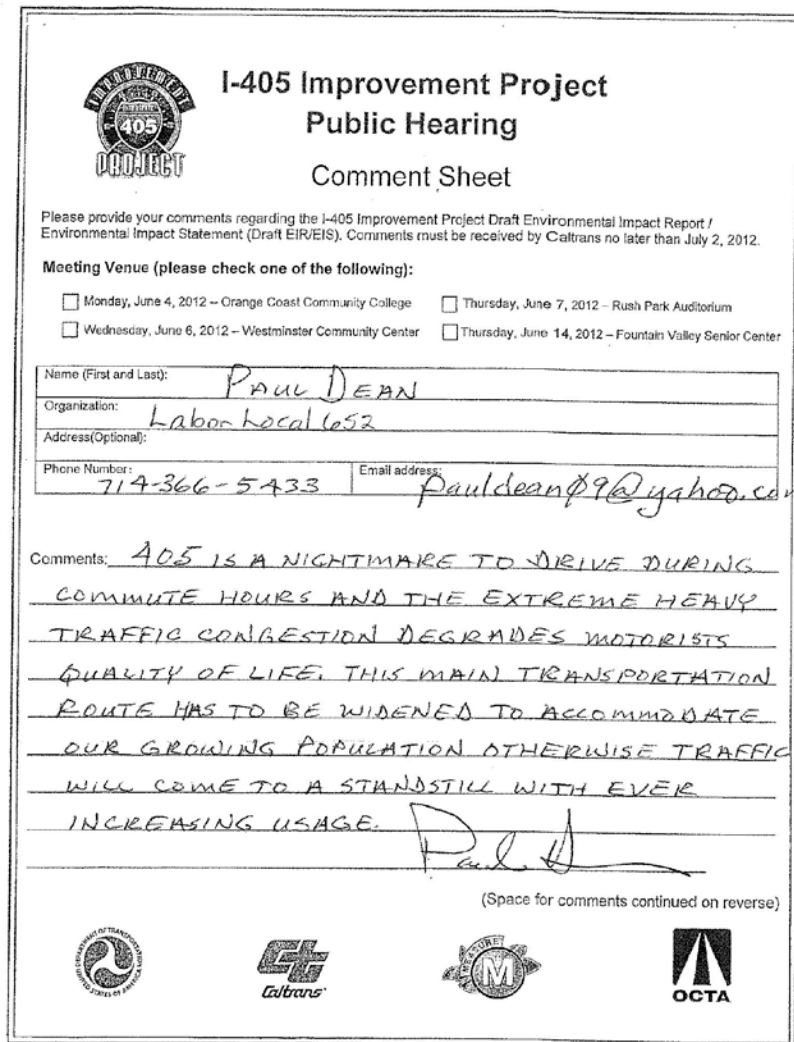 IMPROVEMENT
405
PROJECT
I-405 Improvement Project
Public Hearing
Comment Sheet
Please provide your comments regarding the I-405 Improvement Project Draft Environmental Impact Report /
Environmental Impact Statement (Draft EIR/EIS). Comments must be received by Caltrans no later than July 2, 2012.
Meeting Venue (please check one of the following):
Monday, June 4, 2012 – Orange Coast Community College
Thursday, June 7, 2012 – Rush Park Auditorium
Wednesday, June 6, 2012 – Westminster Community Center
Thursday, June 14, 2012 – Fountain Valley Senior Center
Name (First and Last): PAUL DEAN
Organization: Labor Local 652
Address(Optional):
Phone Number: 714-366-5433
Email address: pauldean09@yahoo.com
Comments: 405 IS A NIGHTMARE TO DRIVE DURING
COMMUTE HOURS AND THE EXTREME HEAVY
TRAFFIC CONGESTION DEGRADES MOTORISTS
QUALITY OF LIFE. THIS MAIN TRANSPORTATION
ROUTE HAS TO BE WIDENED TO ACCOMMODATE
OUR GROWING POPULATION OTHERWISE TRAFFIC
WILL COME TO A STANDSTILL WITH EVER
INCREASING USAGE.
(Space for comments continued on reverse)
DEPARTMENT OF TRANSPORTATION
UNITED STATES OF AMERICA
Caltrans
MEASURE
M
OCTA